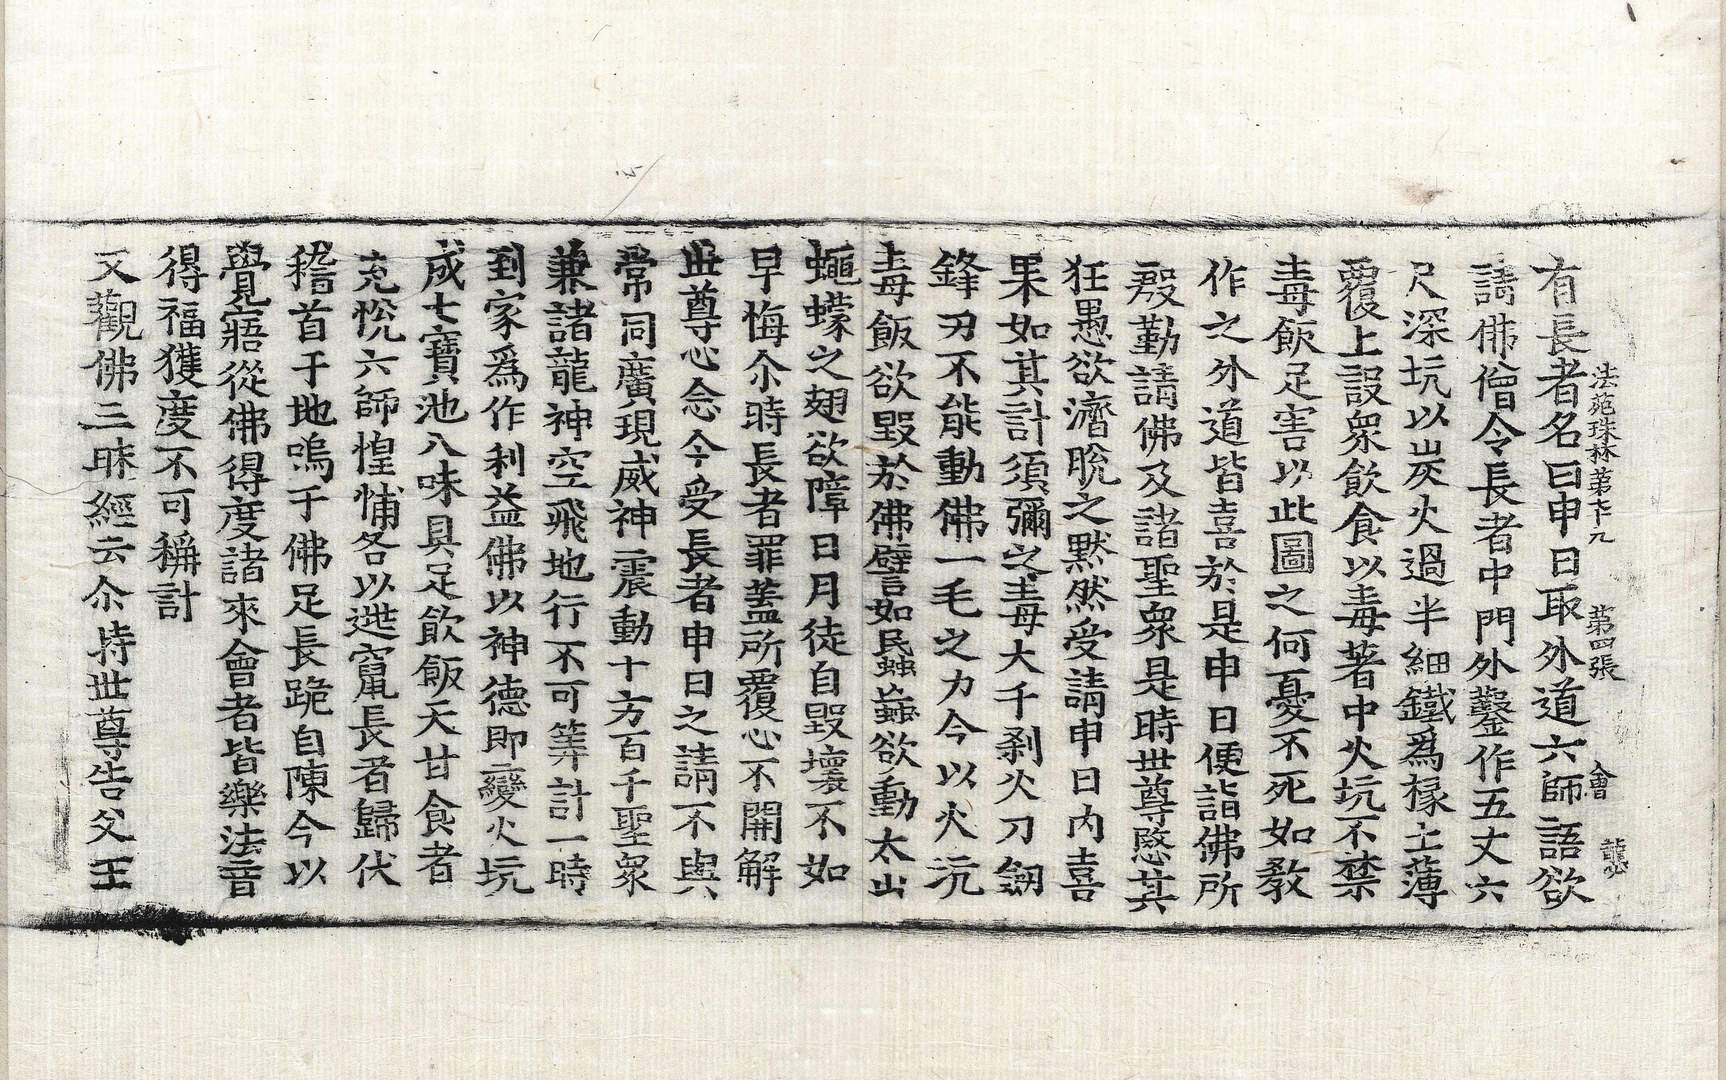 法苑珠林第七十九 第四張 會
有長者名曰申日取外道六師語欲
請佛僧令長者中門外鑿作五丈六
尺深坑以炭火過半細鐵爲椽土薄
覆上設衆飮食以毒著中火坑不禁
毒飯足害以此圖之何憂不死如教
作之外道皆喜於是申日便詣佛所
殷勤請佛及諸聖衆是時世尊愍其
狂愚欲濟脫之黙然受請申日内喜
果如其計須彌之毒大千刹火刀劒
鋒刃不能動佛一毛之力今以火坑
毒飯欲毀於佛譬如民䖝蝱欲動太山
蠅蠓之翅欲障日月徒自毀壞不如
早悔尒時長者罪蓋所覆心不開解
世尊心念今受長者申日之請不與
常同廣現威神震動十方百千聖衆
兼諸龍神空飛地行不可筭計一時
到家爲作利益佛以神德即變火坑
成七寶池八味具足飮飯天甘食者
充悅六師惶怖各以迸竄長者歸伏
稽首于地嗚于佛足長跪自陳今以
覺寤從佛得度諸來會者皆樂法音
得福獲度不可稱計
又觀佛三昧經云尒時世尊告父王